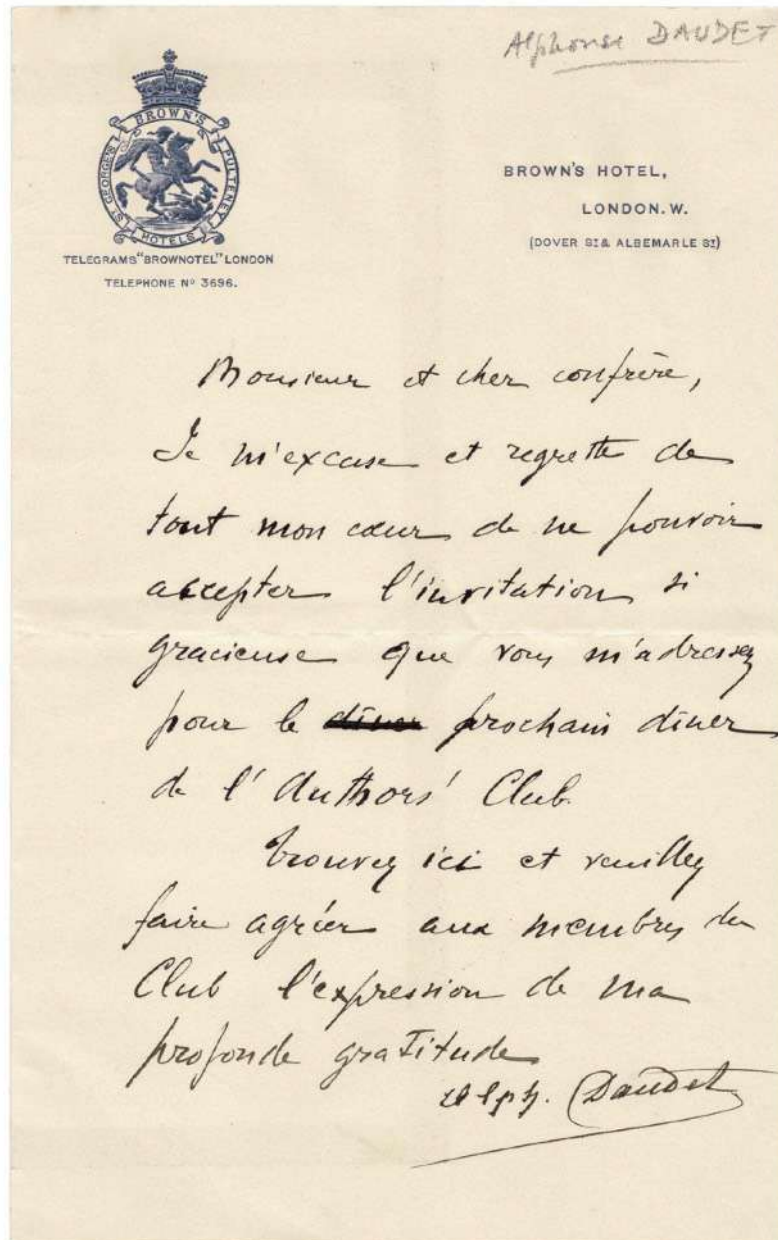 Alphonse DAUDET
BROWN'S
ST GEORGE'S
PULTENEY
HOTELS
TELEGRAMS "BROWNOTEL" LONDON
TELEPHONE Nº 3696.
BROWN'S HOTEL,
LONDON. W.
(DOVER ST & ALBEMARLE ST)
Monsieur et cher confrère,
Je m'excuse et regrette de
tout mon cœur de ne pouvoir
accepter l'invitation si
gracieuse que vous m'adressez
pour le diner prochain diner
de l'Authors' Club.
Trouvez ici et veuillez
faire agréer aux membres du
Club l'expression de ma
profonde gratitude
Alph. Daudet